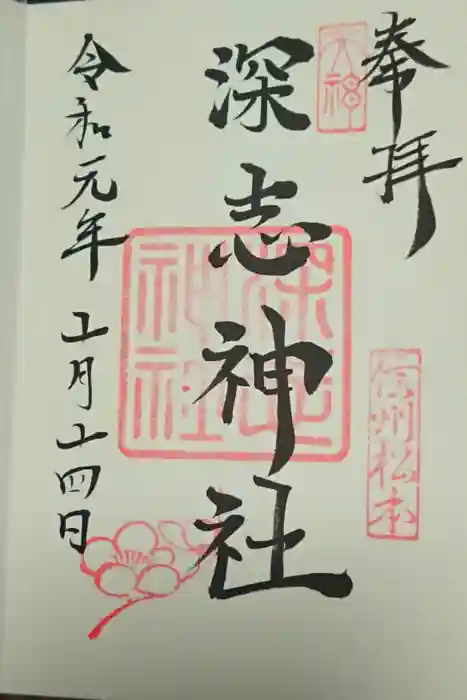 奉拝
天神
信州松本
深志神社
深志神社
令和元年 月 四日